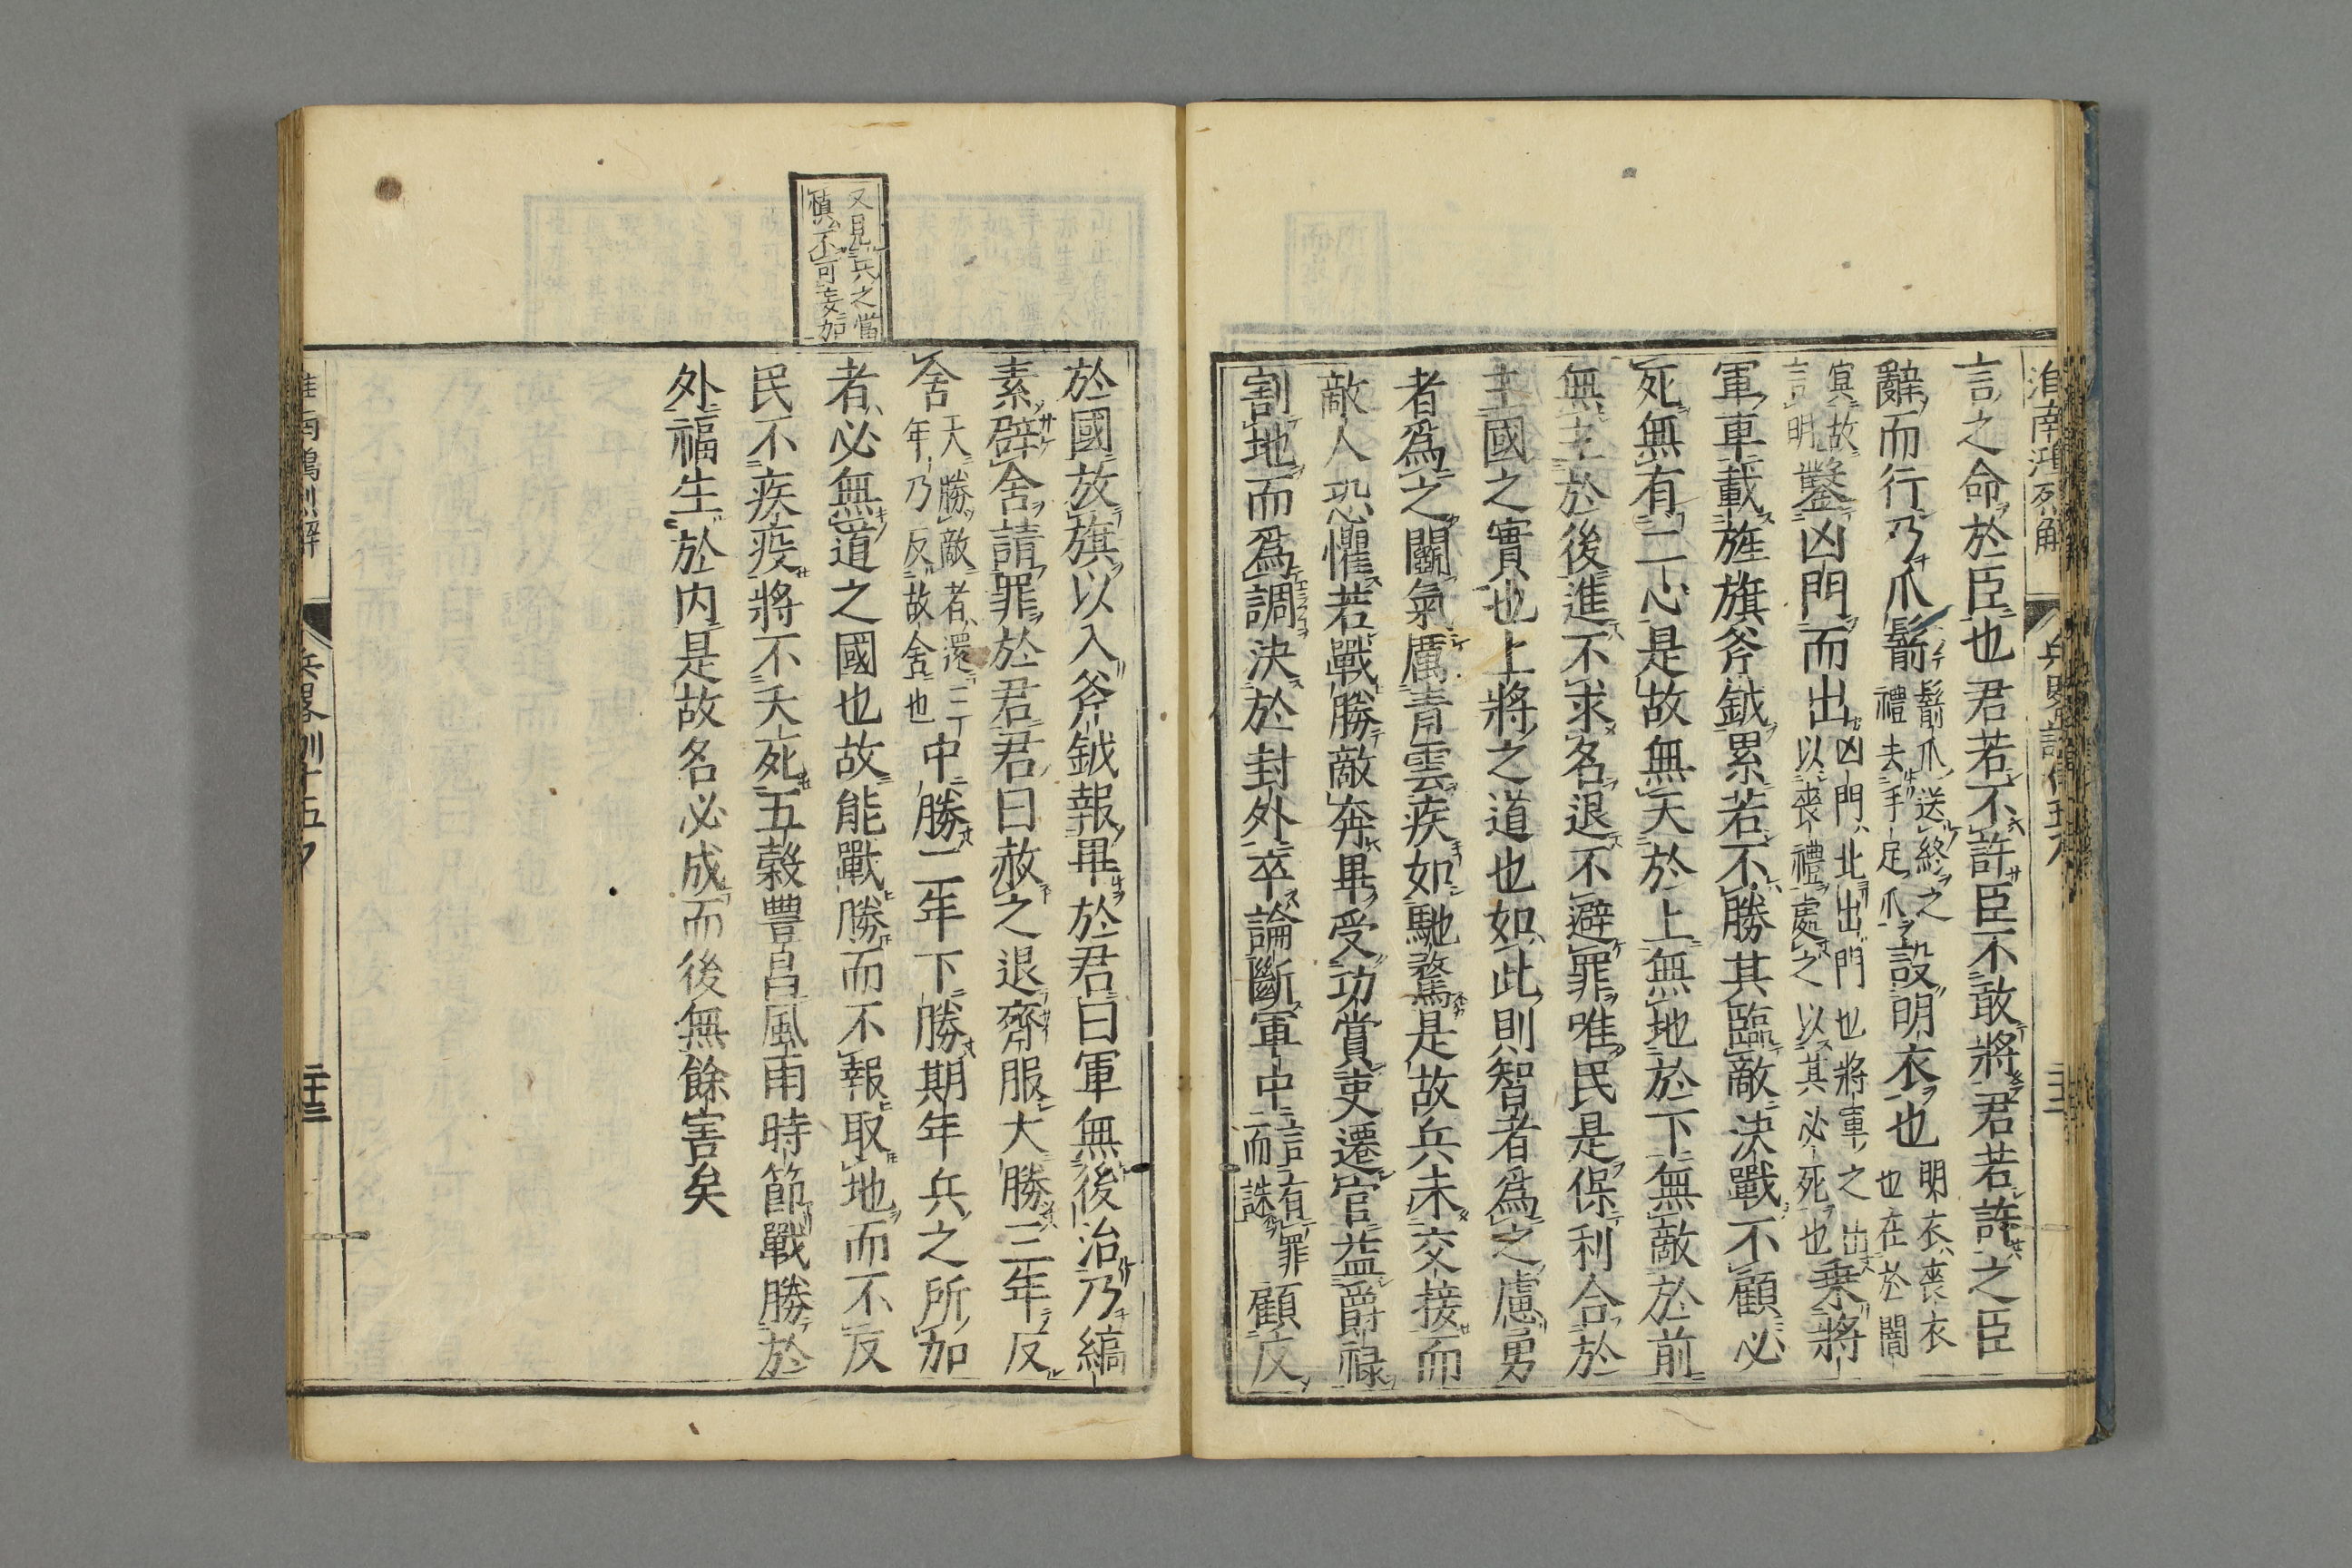 淮南鴻烈解
言之命於臣也君若不許臣不敢將君若許之臣
辭而行乃爪鬋鬋爪送終之禮去手足爪設明衣也明衣喪衣也在於闇
冥故言明鑿凶門而出凶門北出門也將軍之出以喪禮處之以其必死也乗將
軍車載旌旗斧鉞累若不勝其臨敵決戰不顧必
死無有二心是故無天於上無地於下無敵於前
無主於後進不求名退不避罪唯民是保利合於
主國之實也上將之道也如此則智者爲之慮勇
者爲之鬭氣厲青雲疾如馳騖是故兵未交接而
敵人恐懼若戰勝敵奔畢受功賞吏遷官益爵禄
割地而爲調決於封外卒論斷軍中言有罪而誅顧反
於國放旗以入斧鉞報畢於君曰軍無後治乃縞
素辟舍請罪於君君曰赦之退齊服大勝三年反
舍大勝敵者還三年乃反故舍也中勝二年下勝期年兵之所加
者必無道之國也故能戰勝而不報取地而不反
民不疾疫將不夭死五穀豐昌風雨時節戰勝於
外福生於内是故名必成而後無餘害矣
又見兵之當
慎不可妄加